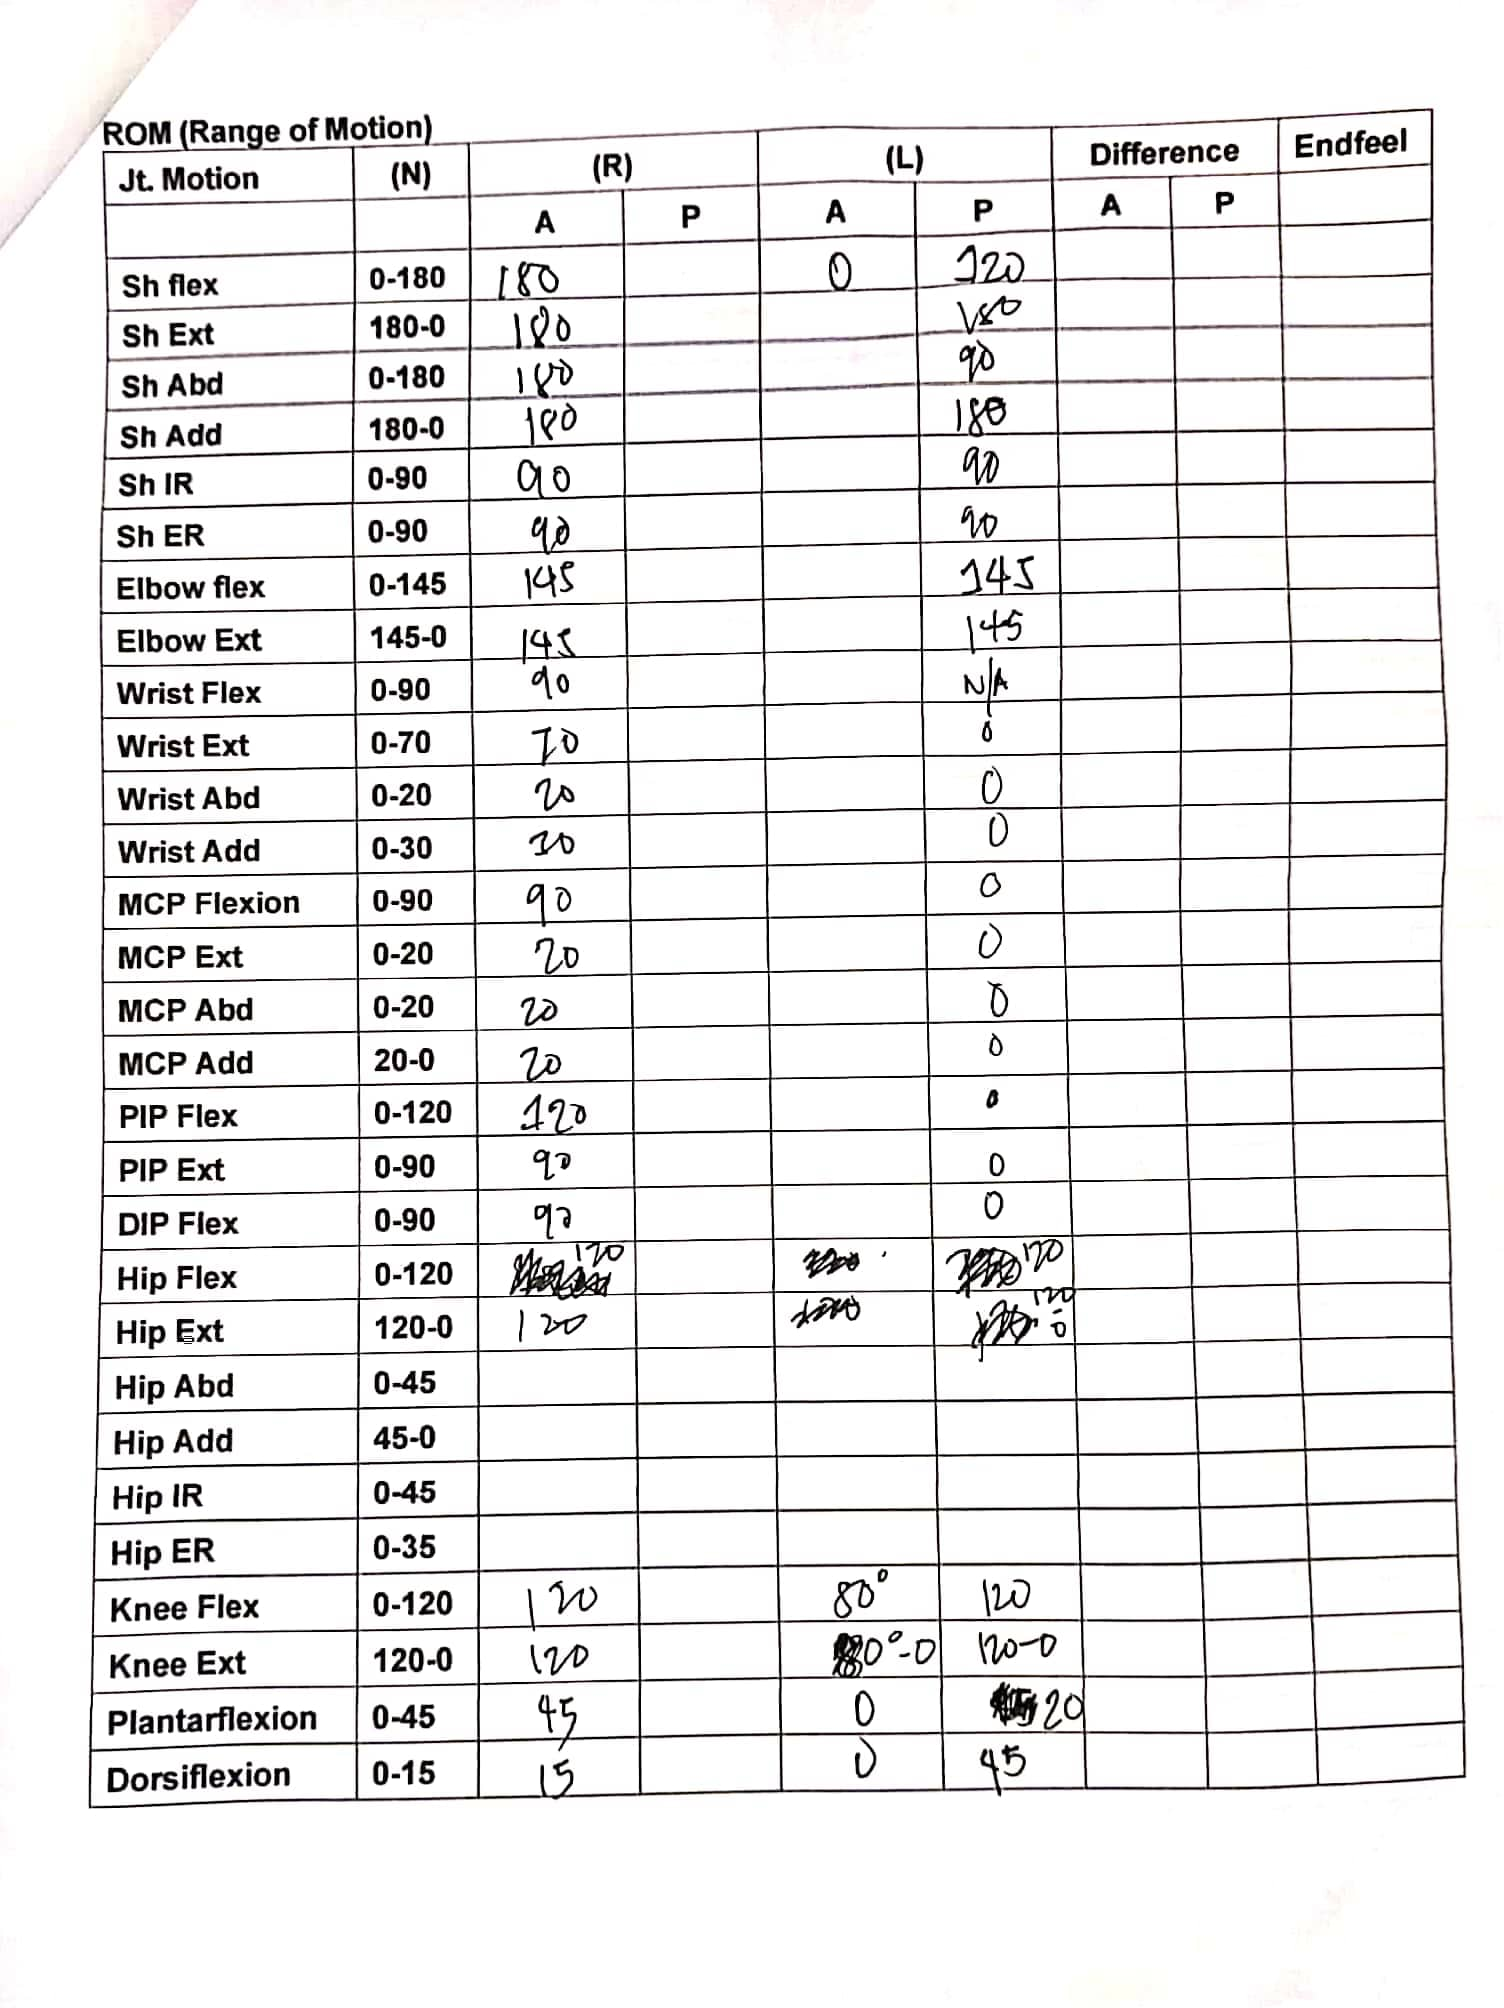 ROM (Range of Motion)
Jt. Motion (N) (R) (L) Difference Endfeel
A P A P A P
Sh flex 0-180 180 0 120
Sh Ext 180-0 180 180
Sh Abd 0-180 180 90
Sh Add 180-0 180 180
Sh IR 0-90 90 90
Sh ER 0-90 90 90
Elbow flex 0-145 145 145
Elbow Ext 145-0 145 145
Wrist Flex 0-90 90 N/A
Wrist Ext 0-70 70 0
Wrist Abd 0-20 20 0
Wrist Add 0-30 30 0
MCP Flexion 0-90 90 0
MCP Ext 0-20 20 0
MCP Abd 0-20 20 0
MCP Add 20-0 20 0
PIP Flex 0-120 120 0
PIP Ext 0-90 90 0
DIP Flex 0-90 90 0
Hip Flex 0-120 120 120
Hip Ext 120-0 120 120-0
Hip Abd 0-45
Hip Add 45-0
Hip IR 0-45
Hip ER 0-35
Knee Flex 0-120 120 80° 120
Knee Ext 120-0 120 80°-0 120-0
Plantarflexion 0-45 45 0 20
Dorsiflexion 0-15 15 0 45